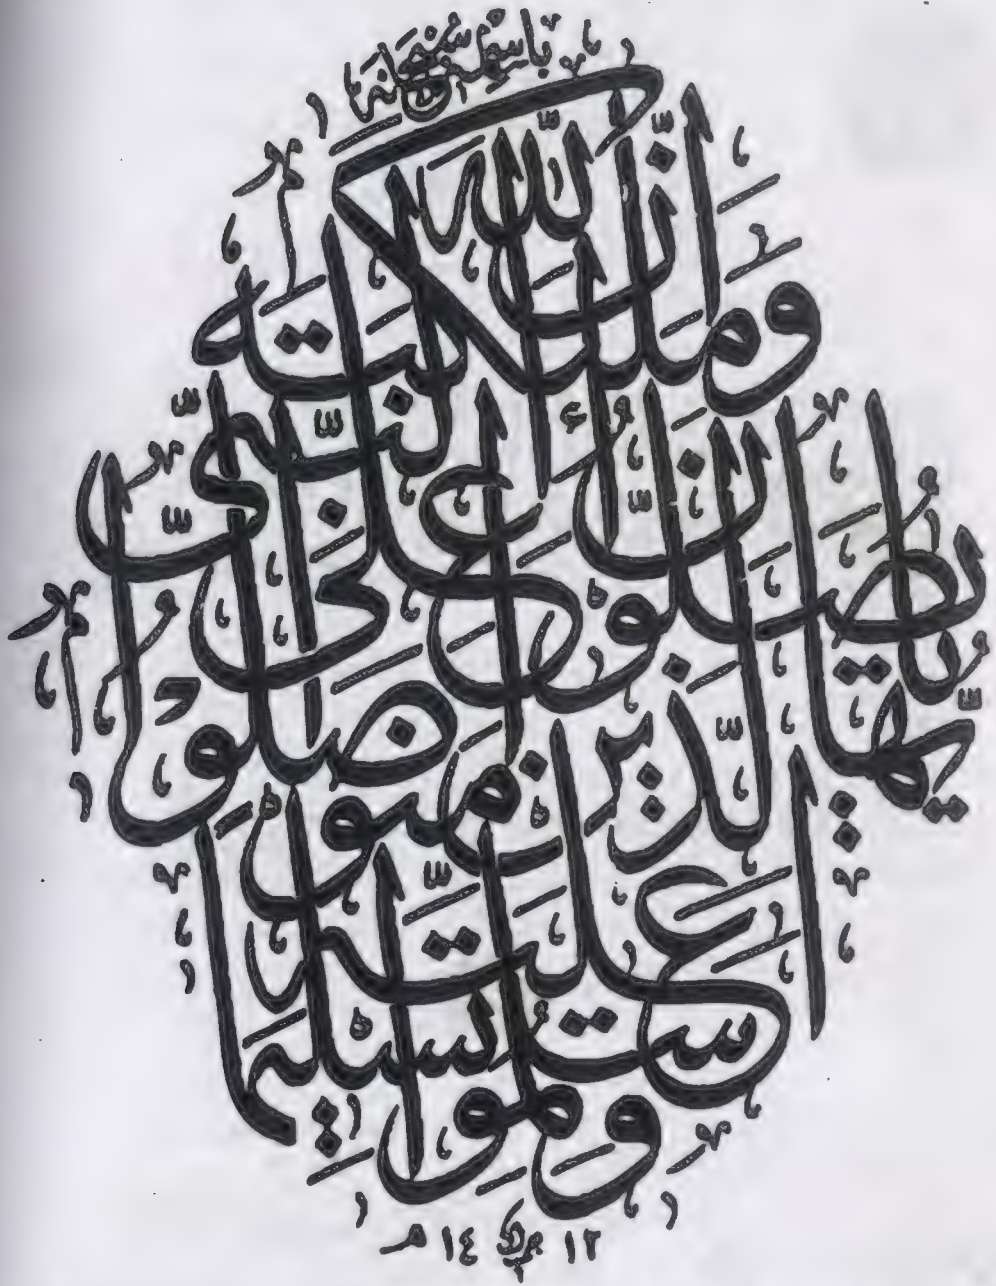 باسمه سبحانه
ان الله وملئكته
يصلون على النبى
يايها الذين امنوا صلوا
عليه وسلموا تسليما
١٢ ١٤